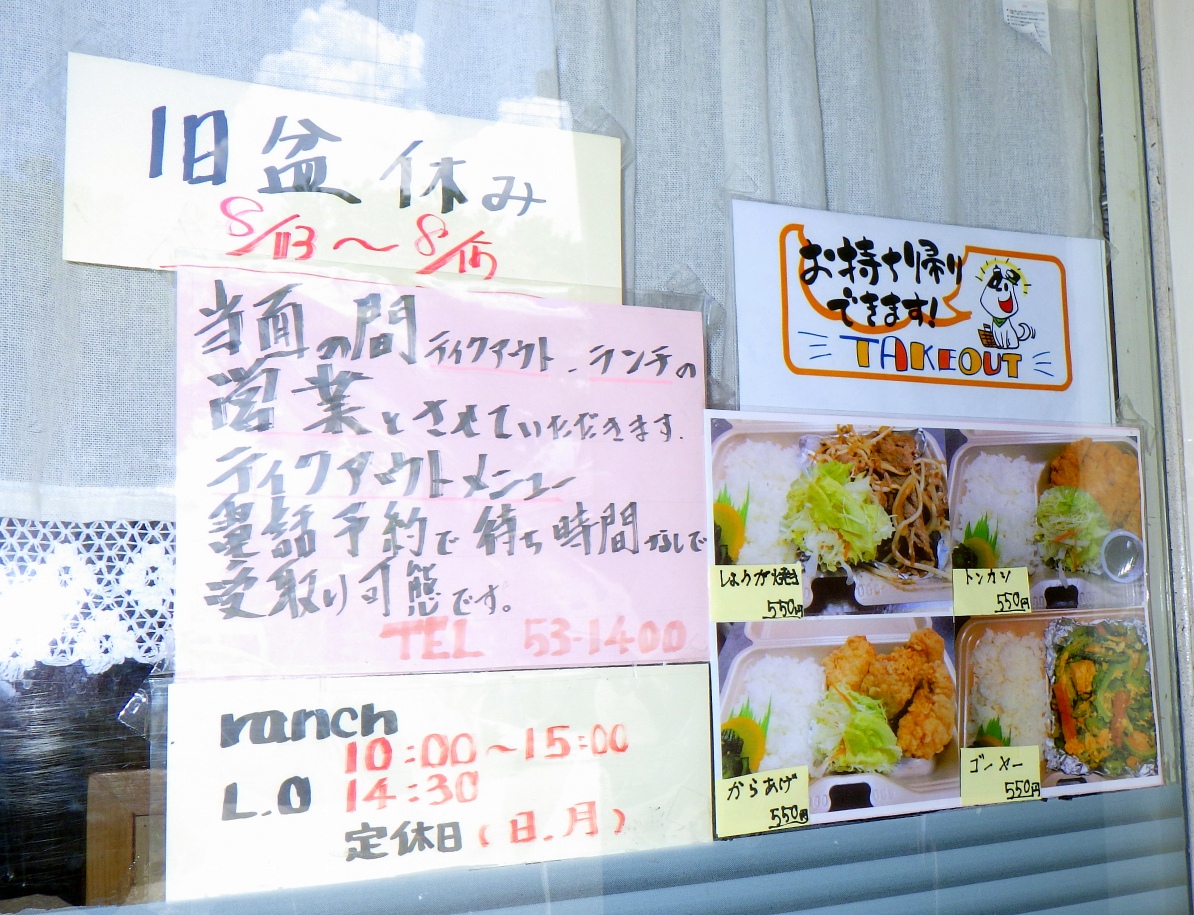 旧盆休み
8/13～8/15
当面の間ティクアウト.ランチの
営業とさせていただきます.
ティクアウトメニュー
電話予約で待ち時間なしで
受取り可能です。
TEL 53-1400
ranch
10:00～15:00
L.O 14:30
定休日(日.月)
お持ち帰り
できます!
TAKEOUT
しょうが焼
550円
トンカツ
550円
からあげ
550円
ゴーヤー
550円